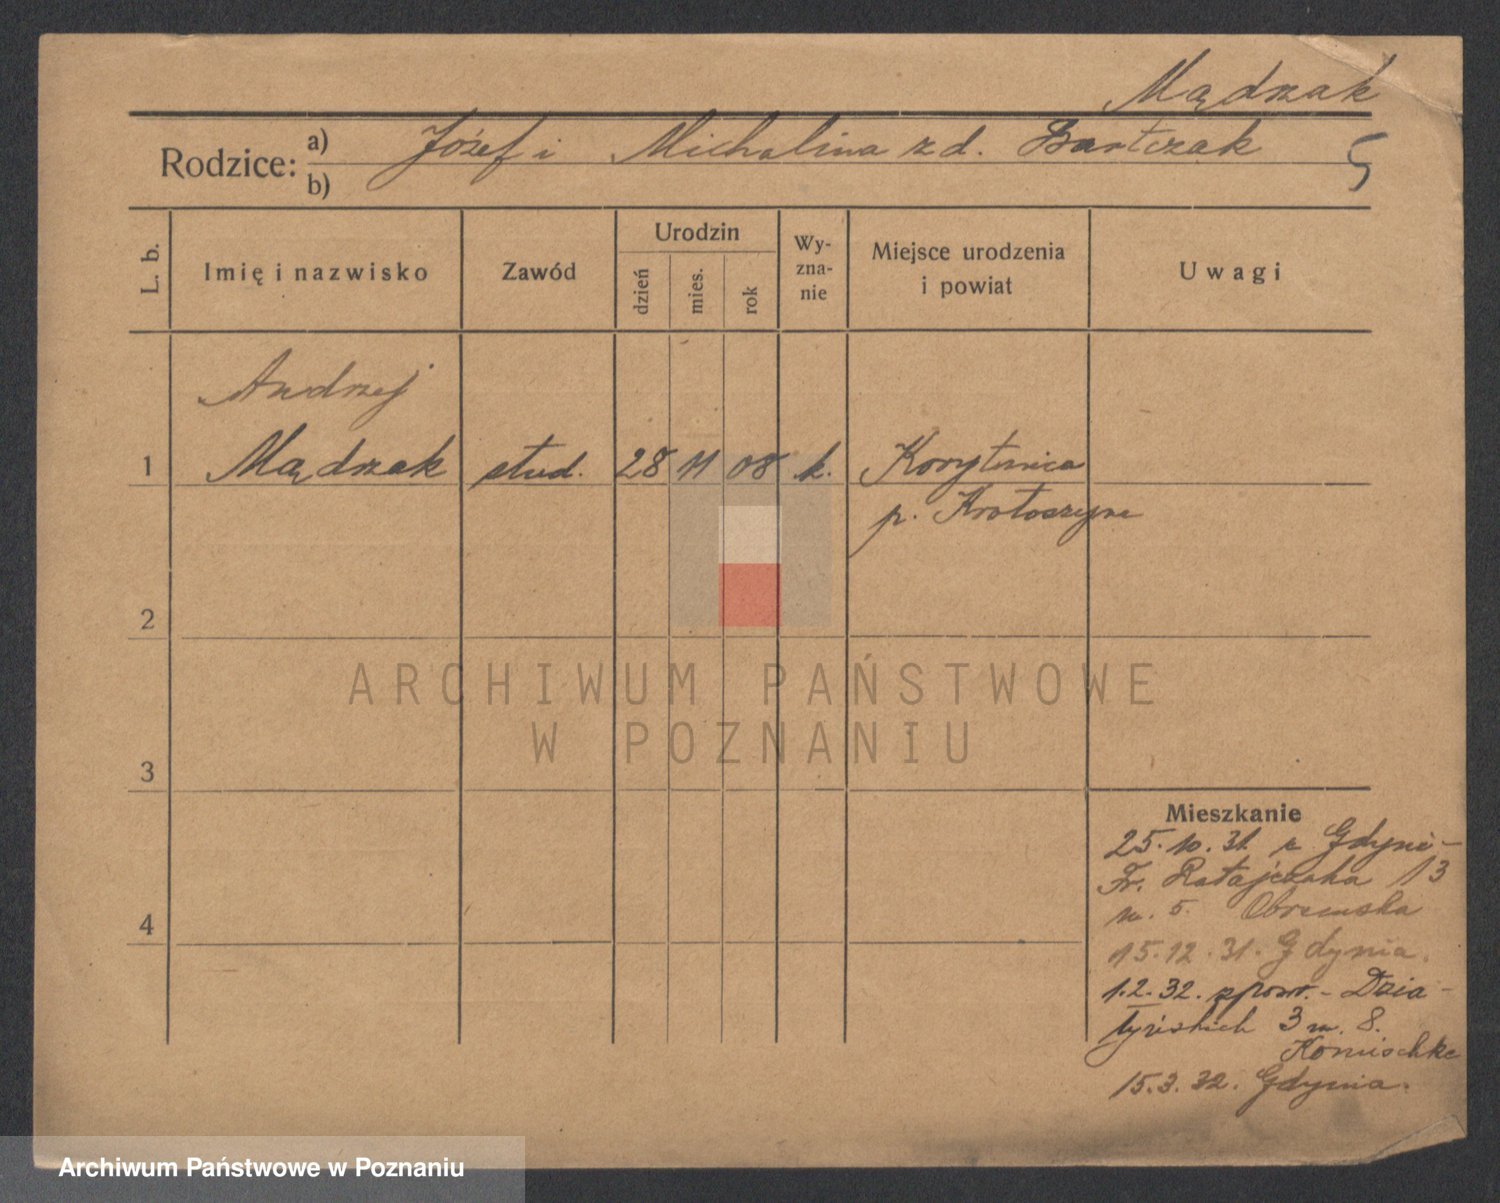 Mądrzak
Rodzice: a) Józef i Michalina z d. Bartczak
b)
5
L. b.
Imię i nazwisko
Zawód
Urodzin
dzień
mies.
rok
Wy-
zna-
nie
Miejsce urodzenia
i powiat
Uwagi
Andrzej
1 Mądrzak stud. 28 11 08 k. Korytnica
p. Krotoszyn
2
ARCHIWUM PAŃSTWOWE
W POZNANIU
3
4
Mieszkanie
25.10.31 z Gdyni-
Fr. Ratajczaka 13
m. 5.
15.12.31. Gdynia.
1.2.32. zpowr.- Dzia-
łyńskich 3 m. 8.
Komischke
15.3.32. Gdynia.
Archiwum Państwowe w Poznaniu